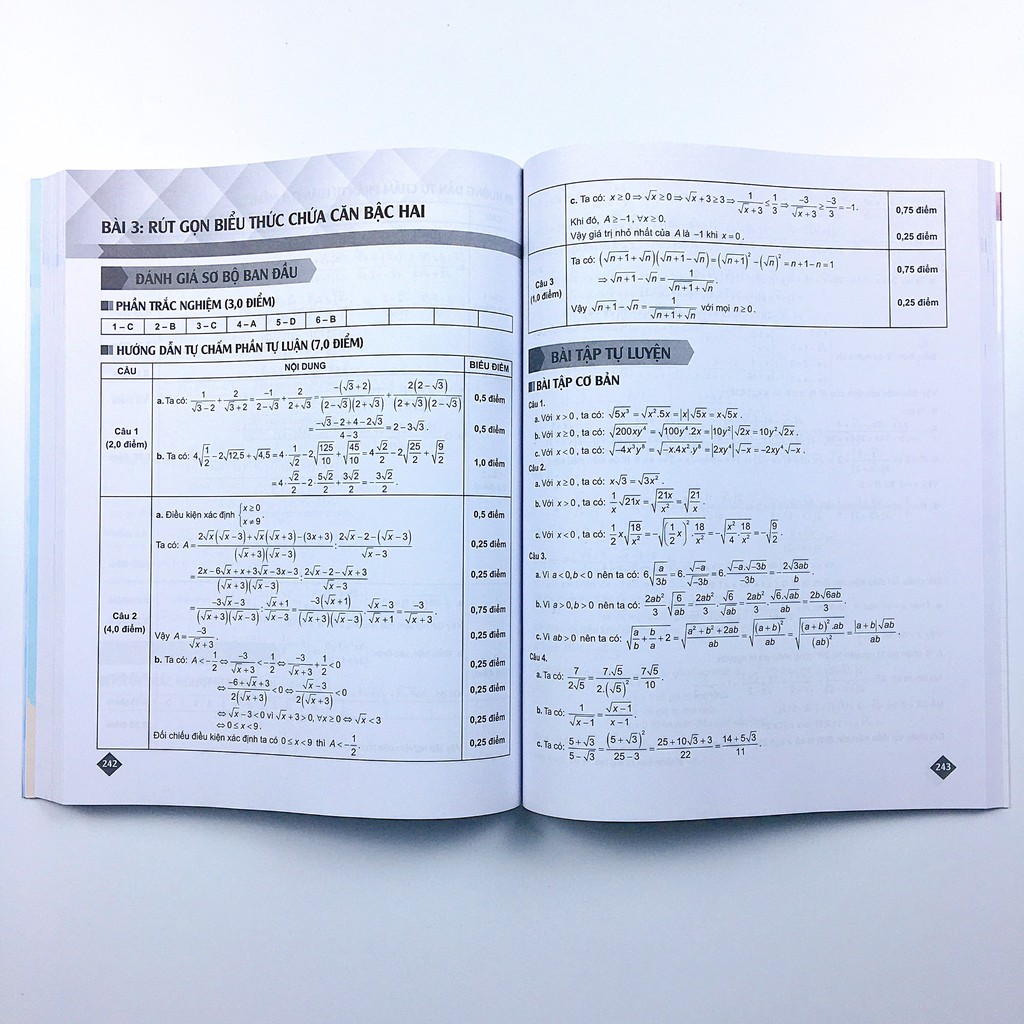 BÀI 3: RÚT GỌN BIỂU THỨC CHỨA CĂN BẬC HAI
ĐÁNH GIÁ SƠ BỘ BAN ĐẦU
PHẦN TRẮC NGHIỆM (3,0 ĐIỂM)
1 – C 2 – B 3 – C 4 – A 5 – D 6 – B
HƯỚNG DẪN TỰ CHẤM PHẦN TỰ LUẬN (7,0 ĐIỂM)
CÂU NỘI DUNG BIỂU ĐIỂM
Câu 1 (2,0 điểm)
a. Ta có: 1/(√3−2) + 2/(√3+2) = −1/(2−√3) + 2/(2+√3) = −(√3+2)/((2−√3)(2+√3)) + 2(2−√3)/((2+√3)(2−√3)) 0,5 điểm
= (−√3−2+4−2√3)/(4−3) = 2−3√3. 0,5 điểm
b. Ta có: 4√(1/2) − 2√12,5 + √4,5 = 4·1/√2 − 2√(125/10) + √(45/10) = 4·√2/2 − 2√(25/2) + √(9/2)
= 4·√2/2 − 2·5√2/2 + 3√2/2 = −3√2/2. 1,0 điểm
Câu 2 (4,0 điểm)
a. Điều kiện xác định {x ≥ 0; x ≠ 9. 0,5 điểm
Ta có: A = (2√x(√x−3)+√x(√x+3)−(3x+3))/((√x+3)(√x−3)) : (2√x−2−(√x−3))/(√x−3) 0,25 điểm
= (2x−6√x+x+3√x−3x−3)/((√x+3)(√x−3)) : (2√x−2−√x+3)/(√x−3) 0,25 điểm
= (−3√x−3)/((√x+3)(√x−3)) : (√x+1)/(√x−3) = −3(√x+1)/((√x+3)(√x−3)) · (√x−3)/(√x+1) = −3/(√x+3) 0,75 điểm
Vậy A = −3/(√x+3). 0,25 điểm
b. Ta có: A < −1/2 ⇔ −3/(√x+3) < −1/2 ⇔ −3/(√x+3) + 1/2 < 0 0,25 điểm
⇔ (−6+√x+3)/(2(√x+3)) < 0 ⇔ (√x−3)/(2(√x+3)) < 0 0,25 điểm
⇔ √x−3 < 0 vì √x+3 > 0, ∀x ≥ 0 ⇔ √x < 3 0,25 điểm
⇔ 0 ≤ x < 9.
Đối chiếu điều kiện xác định ta có 0 ≤ x < 9 thì A < −1/2. 0,25 điểm
242
c. Ta có: x ≥ 0 ⇒ √x ≥ 0 ⇒ √x+3 ≥ 3 ⇒ 1/(√x+3) ≤ 1/3 ⇒ −3/(√x+3) ≥ −3/3 = −1. 0,75 điểm
Khi đó, A ≥ −1, ∀x ≥ 0.
Vậy giá trị nhỏ nhất của A là −1 khi x = 0. 0,25 điểm
Câu 3 (1,0 điểm)
Ta có: (√(n+1)+√n)(√(n+1)−√n) = (√(n+1))² − (√n)² = n+1−n = 1 0,75 điểm
⇒ √(n+1)−√n = 1/(√(n+1)+√n).
Vậy √(n+1)−√n = 1/(√(n+1)+√n) với mọi n ≥ 0. 0,25 điểm
BÀI TẬP TỰ LUYỆN
BÀI TẬP CƠ BẢN
Câu 1.
a. Với x > 0, ta có: √(5x³) = √(x².5x) = |x|√(5x) = x√(5x).
b. Với x ≥ 0, ta có: √(200xy⁴) = √(100y⁴.2x) = |10y²|√(2x) = 10y²√(2x).
c. Với x < 0, ta có: √(−4x³y⁸) = √(−x.4x².y⁸) = |2xy⁴|√(−x) = −2xy⁴√(−x).
Câu 2.
a. Với x ≥ 0, ta có: x√3 = √(3x²).
b. Với x > 0, ta có: (1/x)√(21x) = √(21x/x²) = √(21/x).
c. Với x < 0, ta có: (1/2)x√(18/x²) = −√((1/2 x)²·18/x²) = −√(x²/4·18/x²) = −√(9/2).
Câu 3.
a. Vì a < 0, b < 0 nên ta có: 6√(a/3b) = 6.√(−a)/√(−3b) = 6.√(−a.−3b)/(−3b) = −2√(3ab)/b
b. Vì a > 0, b > 0 nên ta có: (2ab²/3)√(6/ab) = (2ab²/3).√6/√(ab) = (2ab²/3)·√(6.ab)/ab = 2b√(6ab)/3.
c. Vì ab > 0 nên ta có: √(a/b + b/a + 2) = √((a²+b²+2ab)/ab) = √((a+b)²/ab) = √((a+b)².ab/(ab)²) = |a+b|√(ab)/ab.
Câu 4.
a. Ta có: 7/(2√5) = 7.√5/(2.(√5)²) = 7√5/10.
b. Ta có: 1/√(x−1) = √(x−1)/(x−1).
c. Ta có: (5+√3)/(5−√3) = (5+√3)²/(25−3) = (25+10√3+3)/22 = (14+5√3)/11.
243